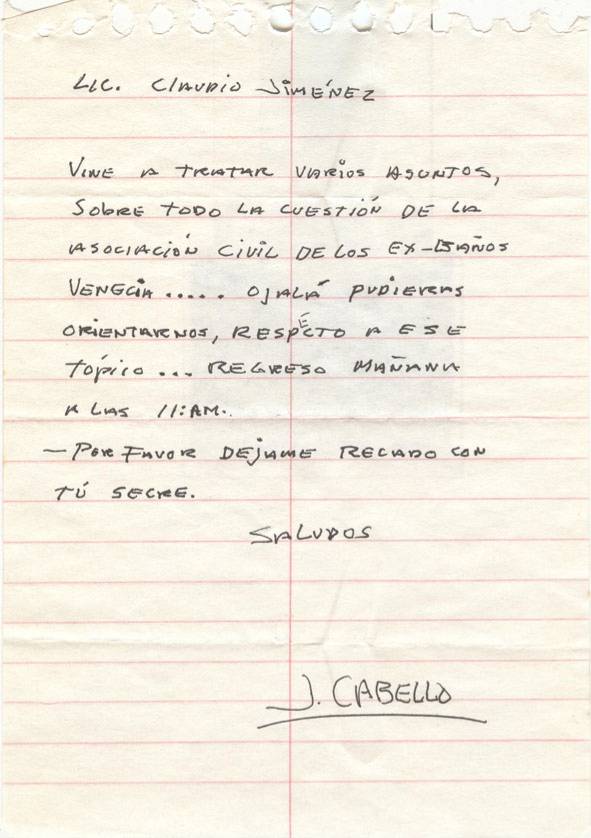 LIC. CLAUDIO JIMÉNEZ
VINE A TRATAR VARIOS ASUNTOS,
SOBRE TODO LA CUESTIÓN DE LA
ASOCIACIÓN CIVIL DE LOS EX-BAÑOS
VENECIA..... OJALÁ PUDIERAS
ORIENTARNOS, RESPÉCTO A ESE
TÓPICO... REGRESO MAÑANA
A LAS 11:AM.
- POR FAVOR DEJAME RECADO CON
TÚ SECRE.
SALUDOS
J. CABELLO